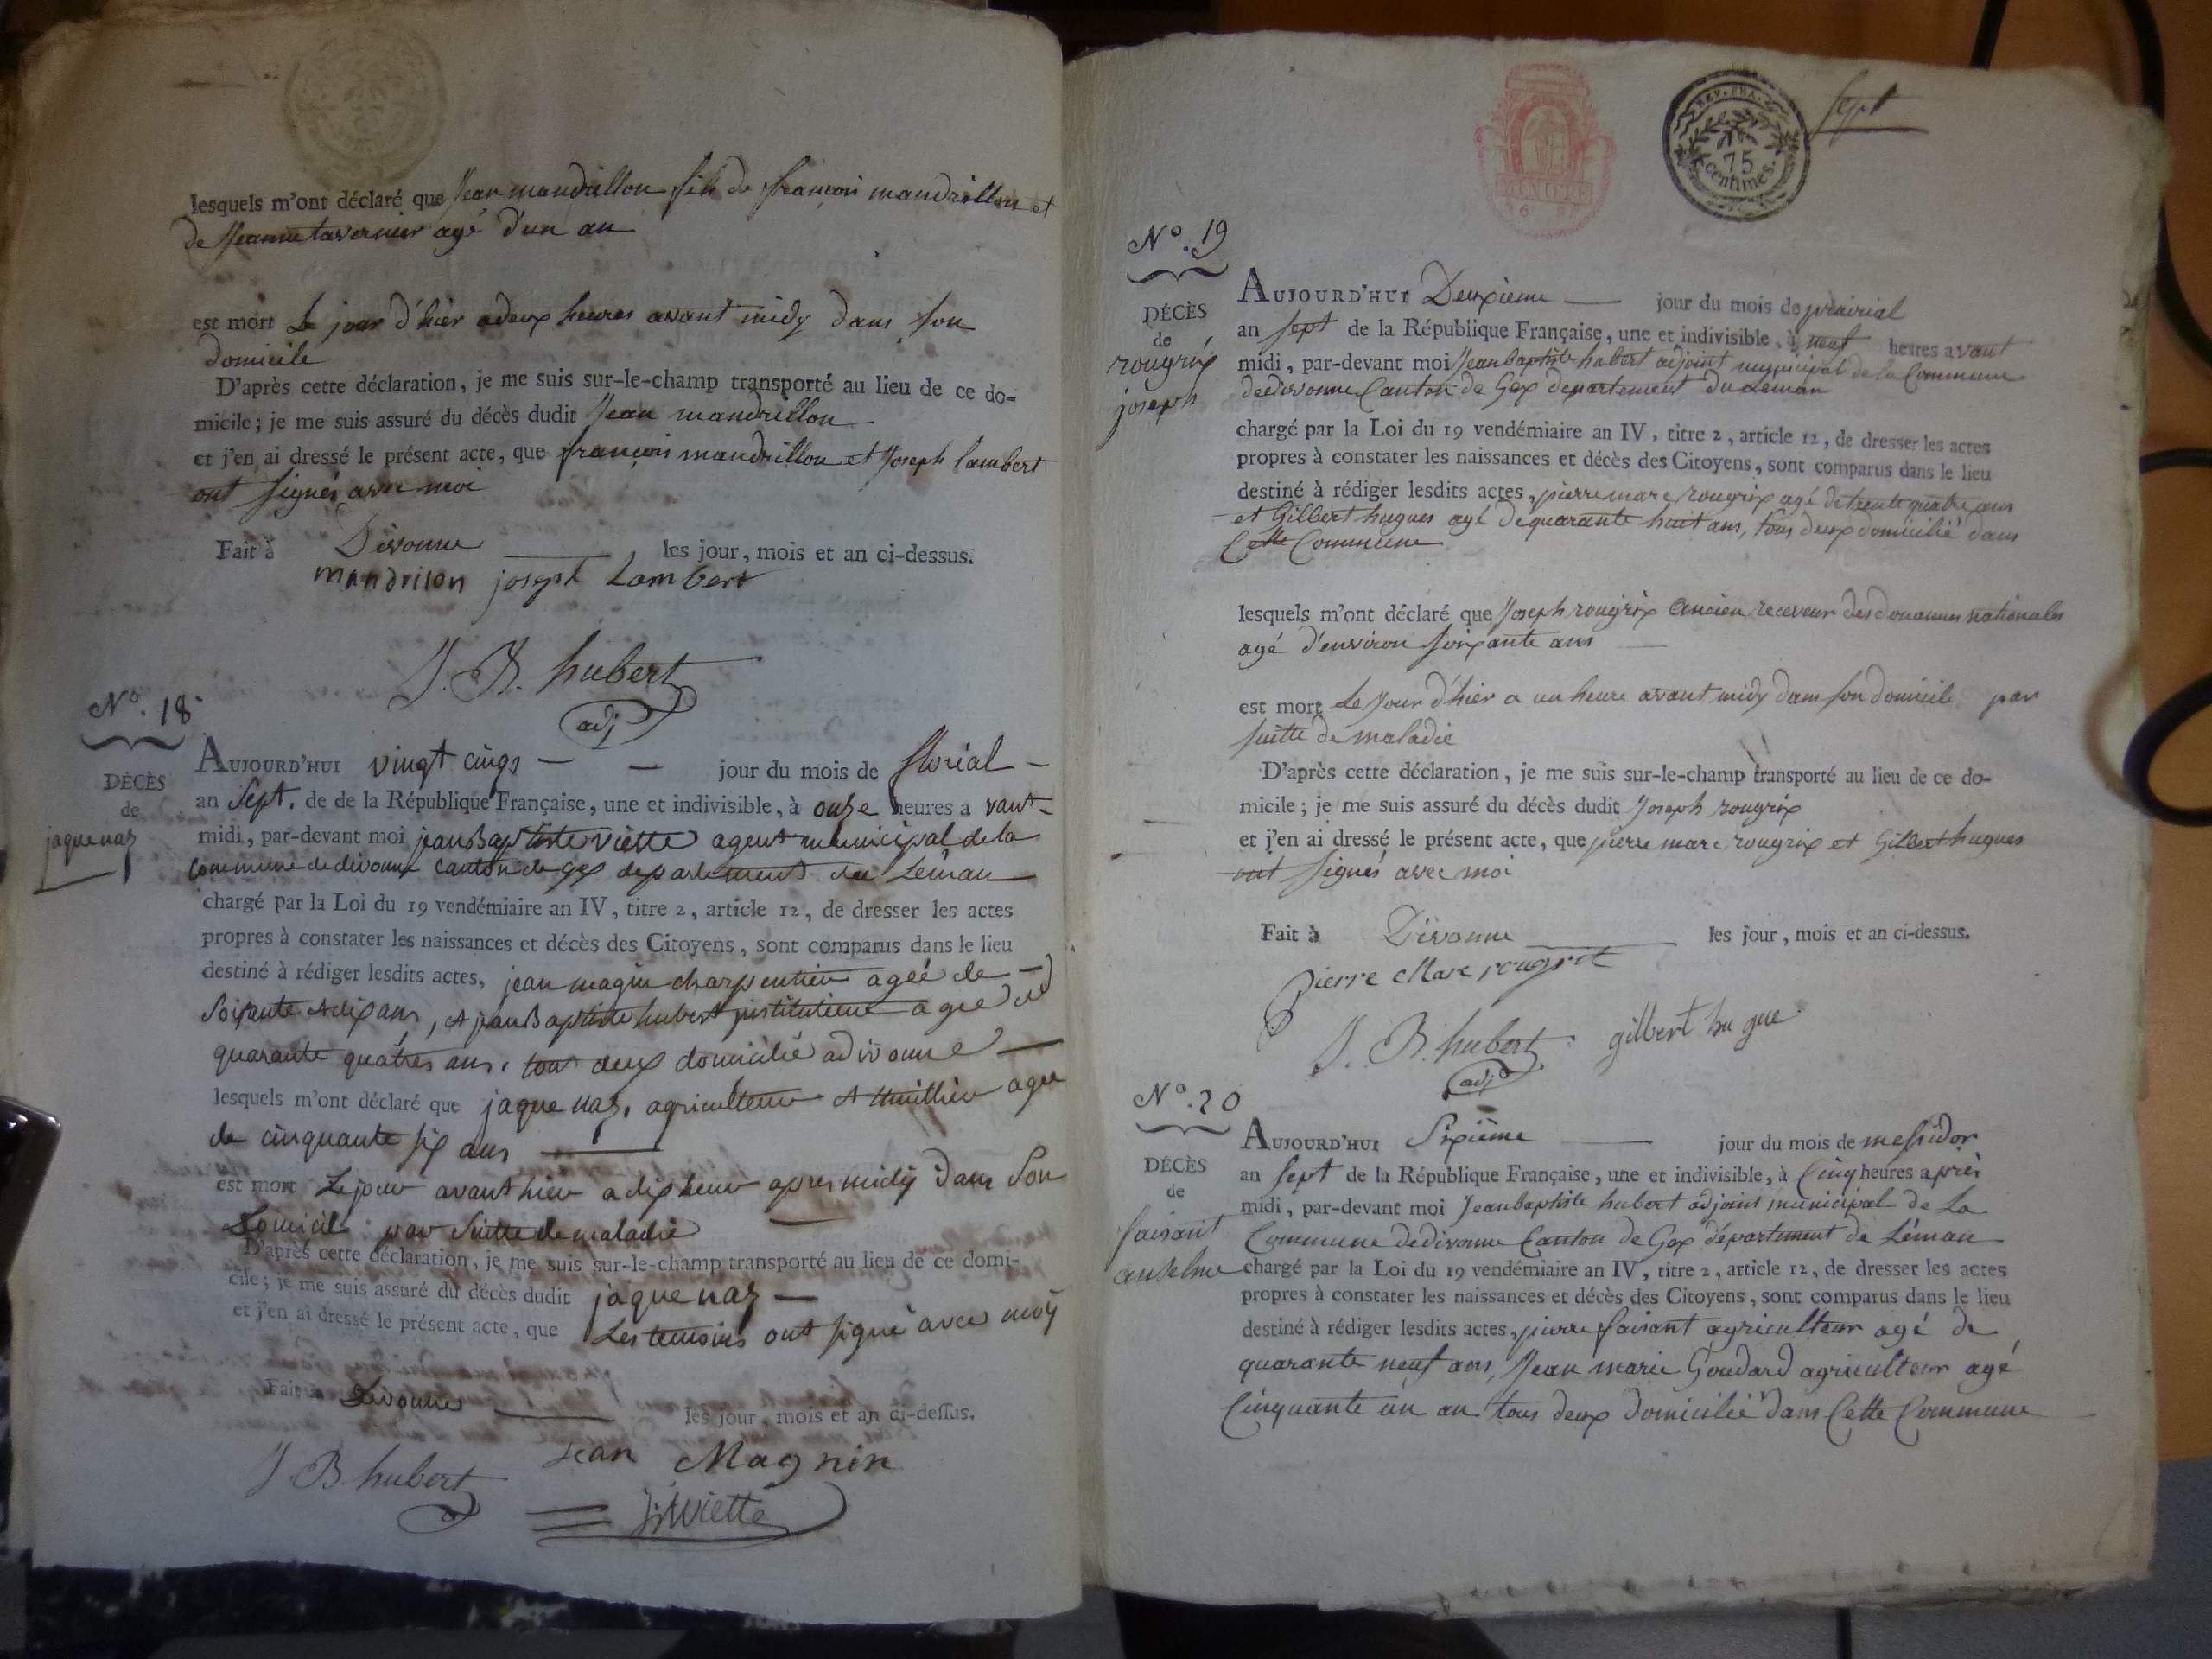 lesquels m'ont déclaré que Jean mandrillon fils de françois mandrillon et
de Jeanne tavernier agé d'un an
est mort Le jour d'hier a deux heures avant midy dans son
domicile
D'après cette déclaration, je me suis sur-le-champ transporté au lieu de ce do-
micile; je me suis assuré du décès dudit Jean mandrillon
et j'en ai dressé le présent acte, que françois mandrillon et Joseph lambert
ont signés avec moi
Fait à Divonne les jour, mois et an ci-dessus.
mandrilon joseph Lambert
J. B. hubert
adj
N°. 18
DÉCÈS
de
jaque naz
AUJOURD'HUI vingt cinqs jour du mois de floréal
an Sept, de de la République Française, une et indivisible, à onze heures a vant
midi, par-devant moi jean Baptiste viette agent municipal de la
Commune de divonne canton de gex departement du Léman
chargé par la Loi du 19 vendémiaire an IV, titre 2, article 12, de dresser les actes
propres à constater les naissances et décès des Citoyens, sont comparus dans le lieu
destiné à rédiger lesdits actes, jean magnin charpentier ageé de
Soixante et dix ans, et jean Baptiste hubert instituteur ageé de
quarante quatres ans, tous deux domicilié a divonne
lesquels m'ont déclaré que jaque naz, agriculteur et age
de cinquante six ans
est mort Le jour avant hier a dix heure apres midy Dans Son
Domicile par Suitte de maladie
D'après cette déclaration, je me suis sur-le-champ transporté au lieu de ce domi-
cile; je me suis assuré du décès dudit jaque naz
et j'en ai dressé le présent acte, que Les temoins ont signé avec moy
Fait à Divonne les jour, mois et an ci-dessus.
J. B. hubert Jean Magnin
Viette
sept
REP. FRA.
75
centimes.
N°. 19
DÉCÈS
de
rougrix
joseph
AUJOURD'HUI Deuxieme jour du mois de prairial
an sept de la République Française, une et indivisible, à neuf heures avant
midi, par-devant moi Jean baptiste hubert adjoint municipal de la Commune
de divonne Canton de Gex departement du Leman
chargé par la Loi du 19 vendémiaire an IV, titre 2, article 12, de dresser les actes
propres à constater les naissances et décès des Citoyens, sont comparus dans le lieu
destiné à rédiger lesdits actes, pierre marc rougrix agé de trente quatre ans
et Gilbert hugues agé de quarante huit ans, tous deux domicilié dans
Cette Commune
lesquels m'ont déclaré que Joseph rougrix ancien receveur des douannes nationales
agé d'environ soixante ans
est mort Le Jour d'hier a un heure avant midy dans son domicile par
suitte de maladie
D'après cette déclaration, je me suis sur-le-champ transporté au lieu de ce do-
micile; je me suis assuré du décès dudit Joseph rougrix
et j'en ai dressé le présent acte, que pierre marc rougrix et Gilbert hugues
ont signés avec moi
Fait à Divonne les jour, mois et an ci-dessus.
Pierre Marc rougrit
J. B. hubert gilbert hu gue
adj
N°. 20
DÉCÈS
de
faisant
anselme
AUJOURD'HUI Sixième jour du mois de messidor
an sept de la République Française, une et indivisible, à Cinq heures après
midi, par-devant moi Jean baptiste hubert adjoint municipal de La
Commune de divonne Canton de Gex département de Léman
chargé par la Loi du 19 vendémiaire an IV, titre 2, article 12, de dresser les actes
propres à constater les naissances et décès des Citoyens, sont comparus dans le lieu
destiné à rédiger lesdits actes, pierre faisant agriculteur agé de
quarante neuf ans, Jean marie Goudard agriculteur agé
Cinquante un an tous deux domicilié dans Cette Commune